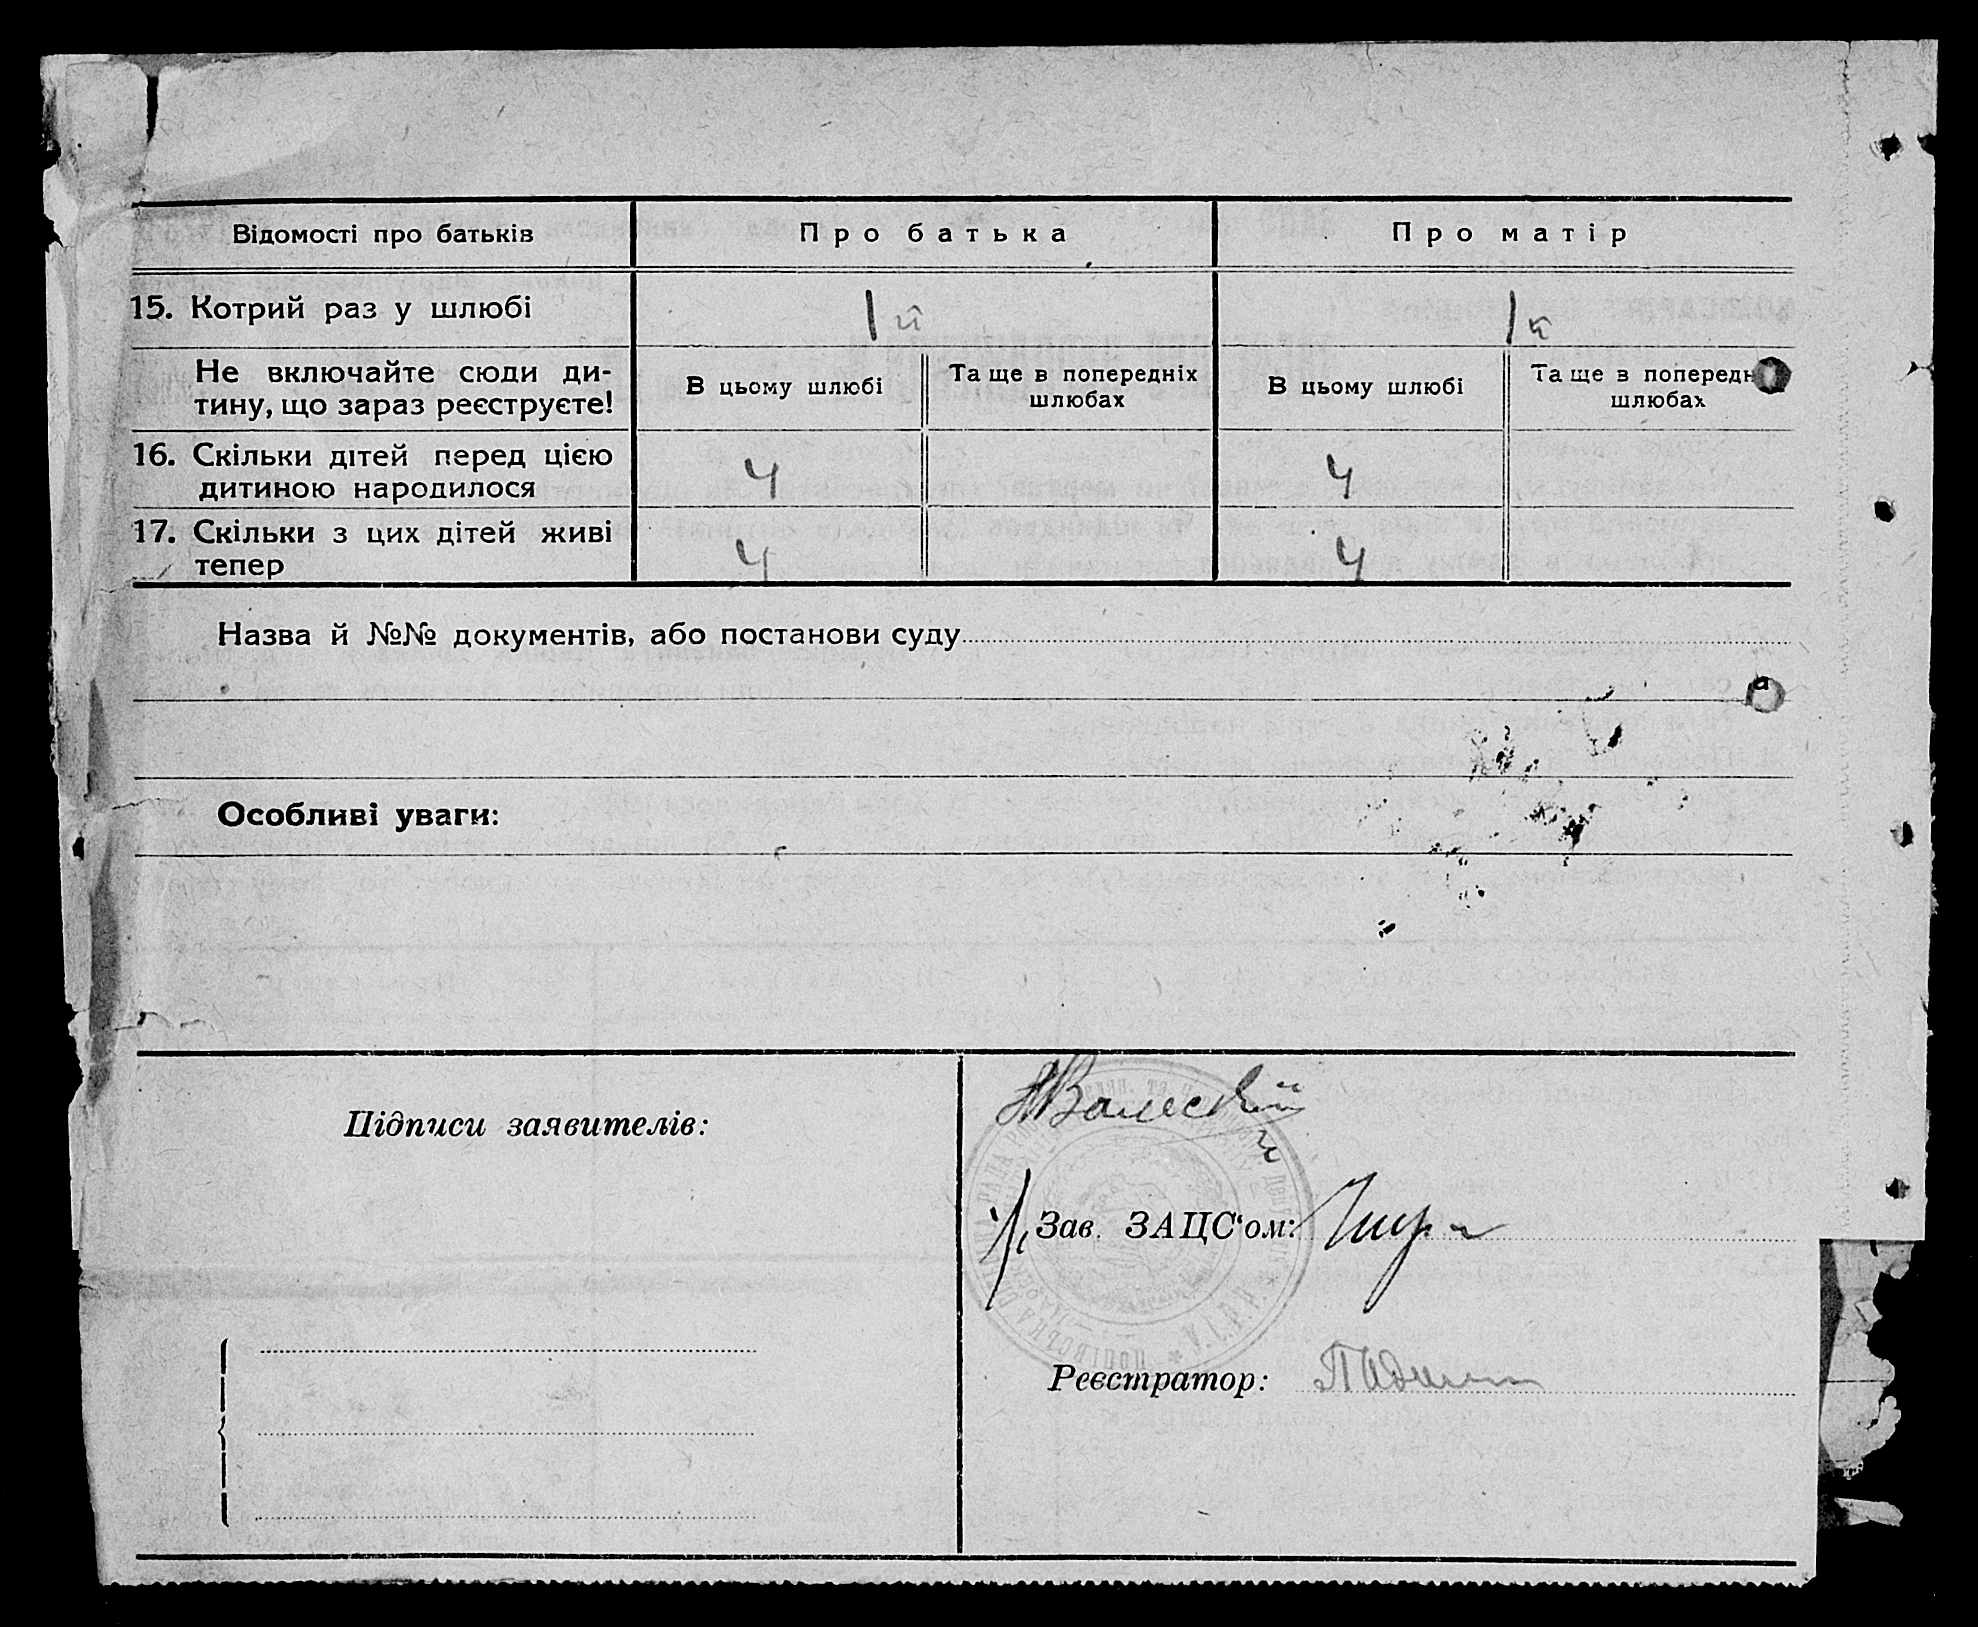 Відомості про батьків
Про батька
Про матір
15. Котрий раз у шлюбі
1й
1й
Не включайте сюди ди-
тину, що зараз реєструєте!
В цьому шлюбі
Та ще в попередніх
шлюбах
В цьому шлюбі
Та ще в попередн
шлюбах
16. Скільки дітей перед цією
дитиною народилося
4
4
17. Скільки з цих дітей живі
тепер
4
4
Назва й №№ документів, або постанови суду
Особливі уваги:
Підписи заявителів:
Зав. ЗАЦС‘ом:
Реєстратор: